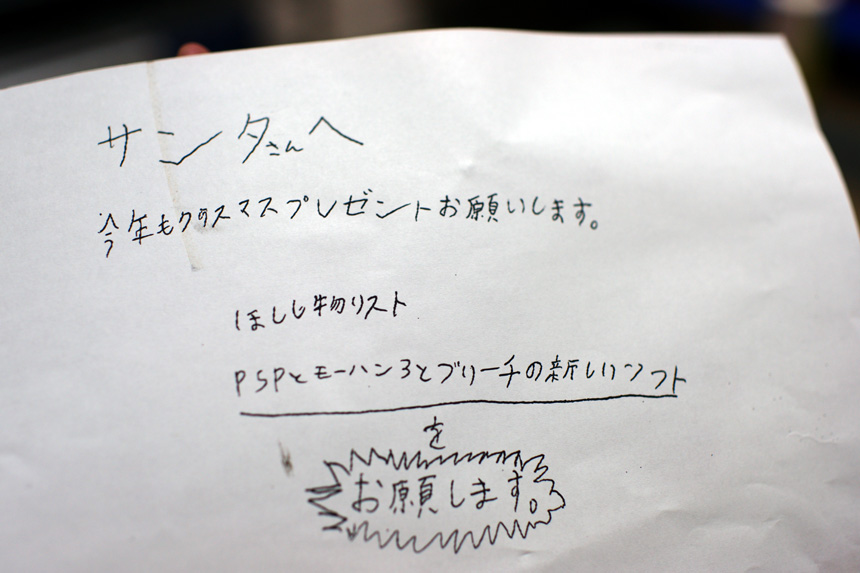 サンタさんへ
今年もクリスマスプレゼントお願いします。
ほしい物リスト
PSPとモーハン3とブリーチの新しいソフト
を
お願します。